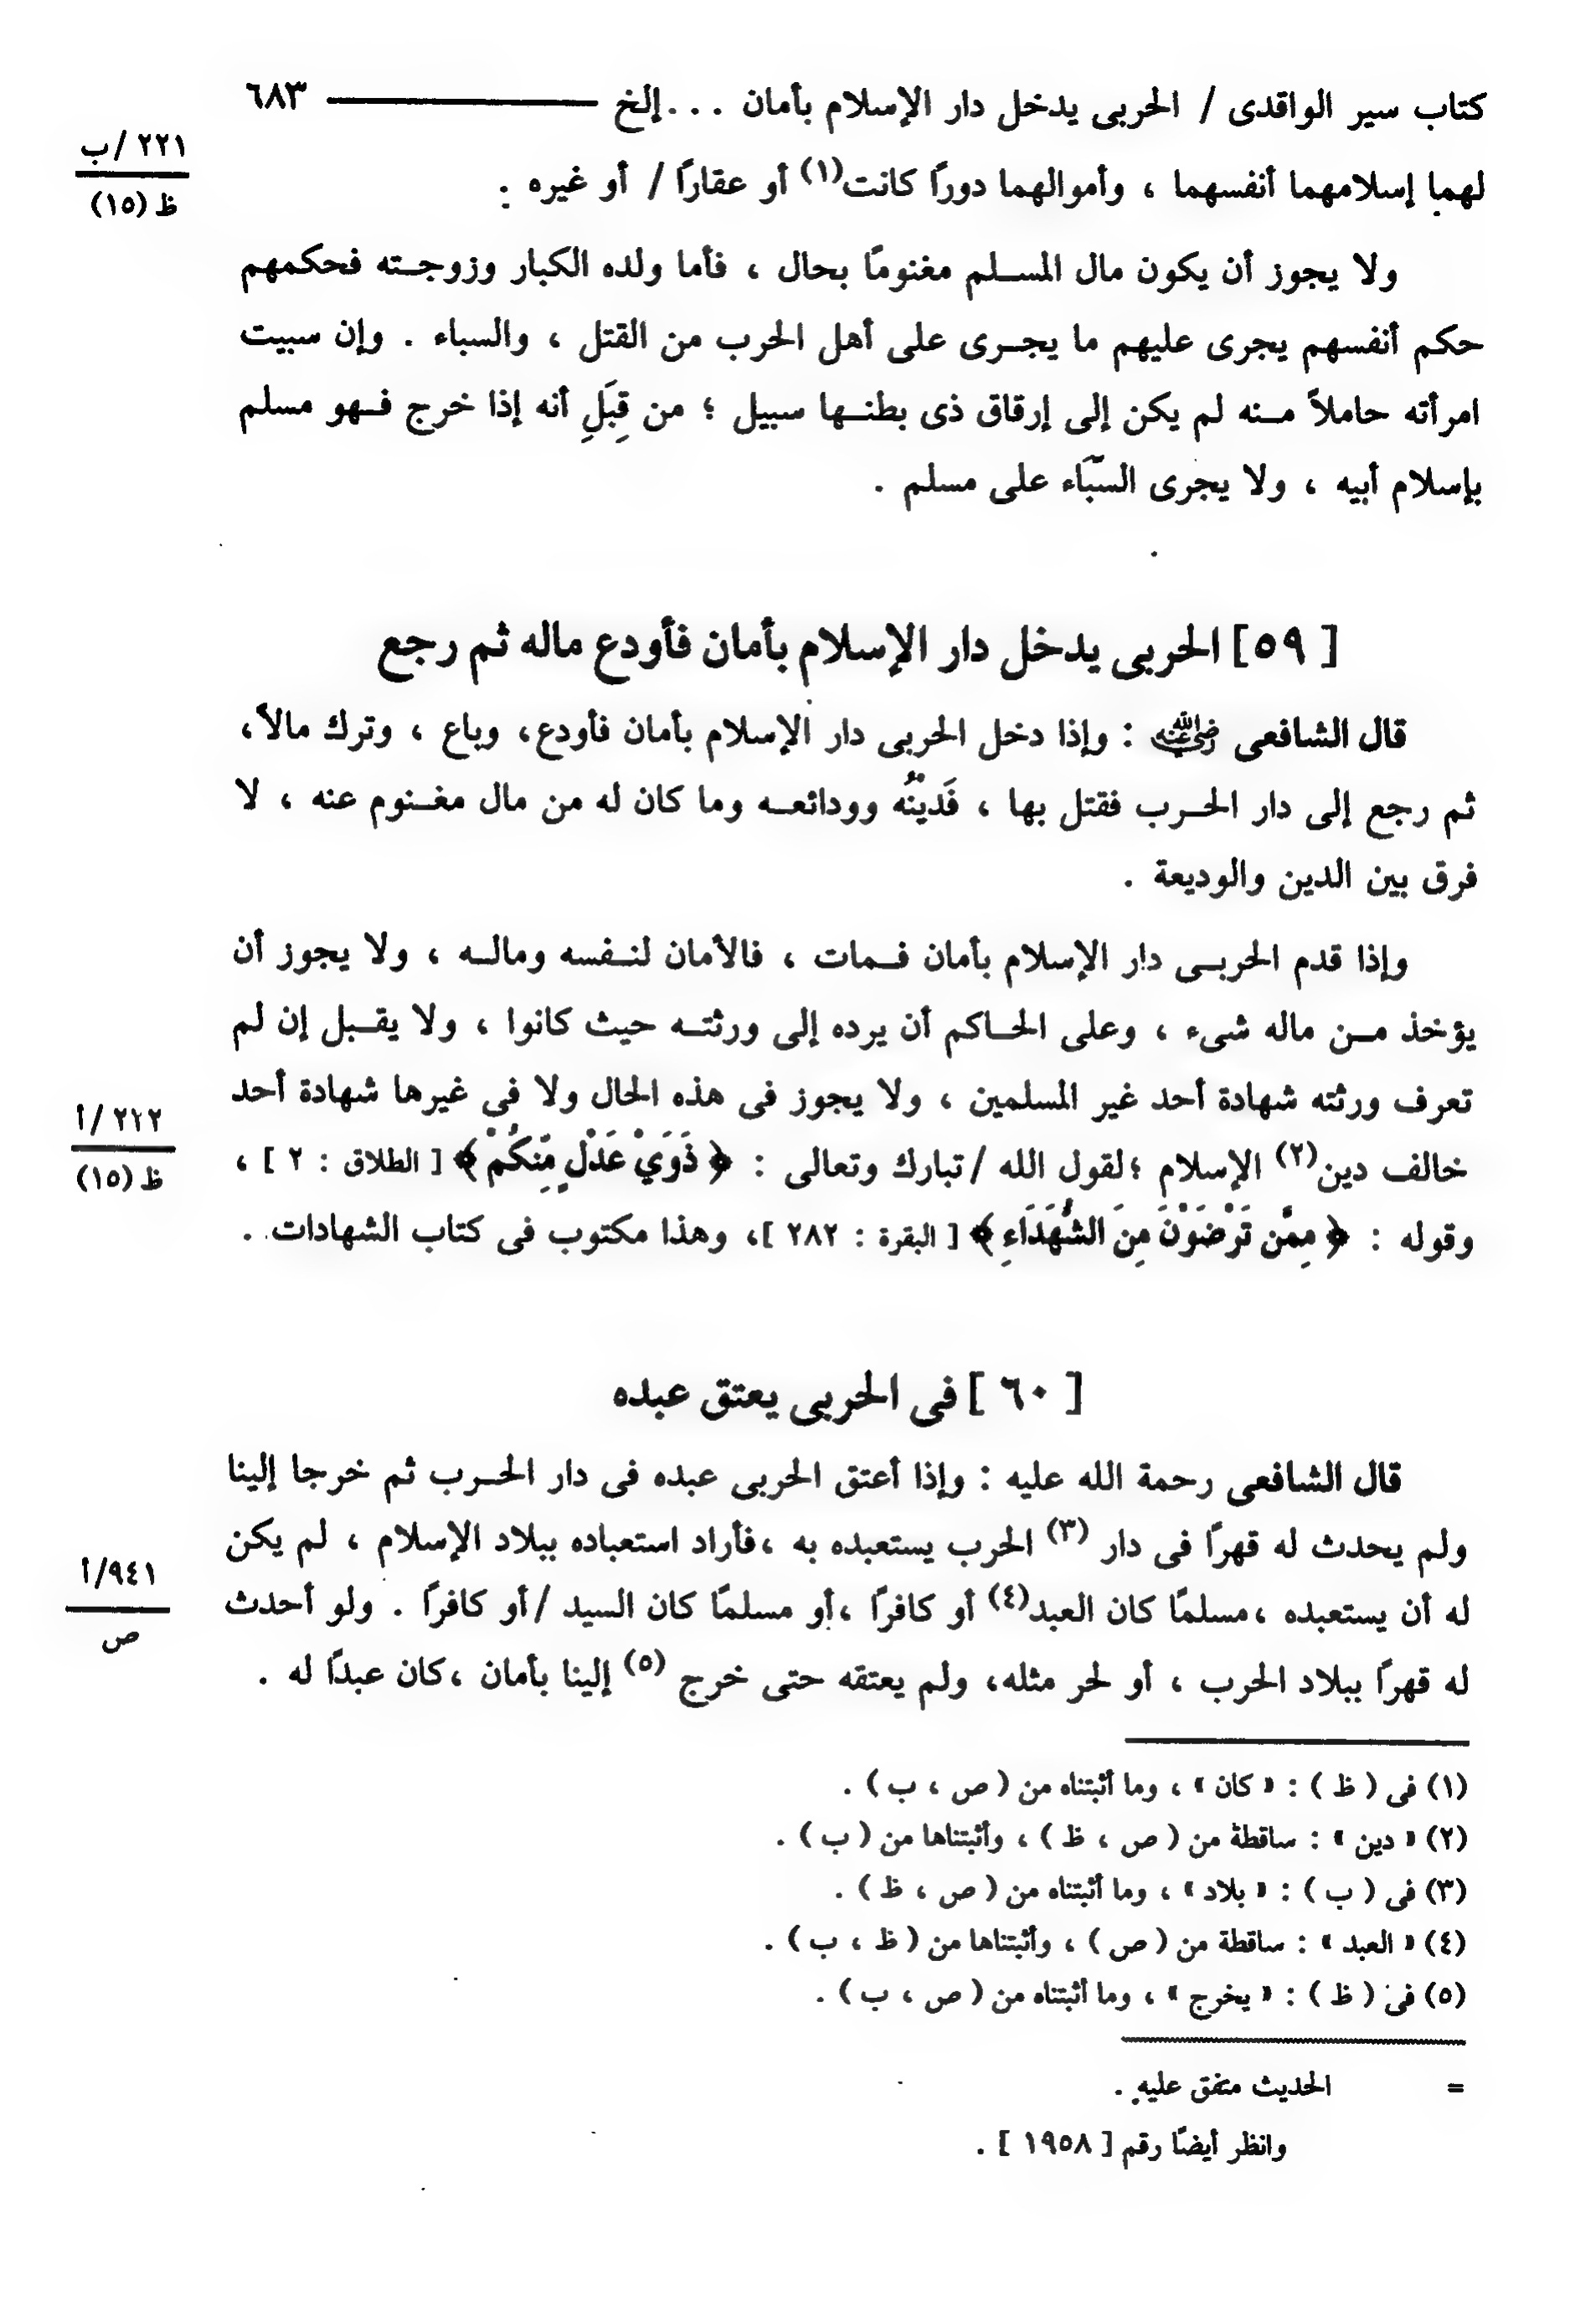 كتاب سير الواقدى / الحربى يدخل دار الإسلام بأمان . . . إلخ ـــــــ ٦٨٣
٢٢١ /ب
ظ (١٥)
لهما إسلامهما أنفسهما ، وأموالهما دورًا كانت(١) أو عقارًا / أو غيره .
ولا يجوز أن يكون مال المسلم مغنومًا بحال ، فأما ولده الكبار وزوجته فحكمهم
حكم أنفسهم يجرى عليهم ما يجرى على أهل الحرب من القتل ، والسباء . وإن سبيت
امرأته حاملاً منه لم يكن إلى إرقاق ذى بطنها سبيل ؛ من قِبَلِ أنه إذا خرج فهو مسلم
بإسلام أبيه ، ولا يجرى السِّبَاء على مسلم .
[ ٥٩] الحربى يدخل دار الإسلام بأمان فأودع ماله ثم رجع
قال الشافعى رضي الله عنه : وإذا دخل الحربى دار الإسلام بأمان فأودع، وباع ، وترك مالاً،
ثم رجع إلى دار الحرب فقتل بها ، فَدَيْنُه وودائعه وما كان له من مال مغنوم عنه ، لا
فرق بين الدين والوديعة .
وإذا قدم الحربى دار الإسلام بأمان فمات ، فالأمان لنفسه وماله ، ولا يجوز أن
يؤخذ من ماله شىء ، وعلى الحاكم أن يرده إلى ورثته حيث كانوا ، ولا يقبل إن لم
تعرف ورثته شهادة أحد غير المسلمين ، ولا يجوز فى هذه الحال ولا فى غيرها شهادة أحد
٢١٢ /أ
ظ (١٥)
خالف دين(٢) الإسلام ؛لقول الله /تبارك وتعالى : ﴿ ذَوَيْ عَدْلٍ مِّنكُمْ ﴾ [ الطلاق : ٢ ] ،
وقوله : ﴿ مِمَّن تَرْضَوْنَ مِنَ الشُّهَدَاءِ ﴾ [ البقرة : ٢٨٢ ]، وهذا مكتوب فى كتاب الشهادات .
[ ٦٠ ] فى الحربى يعتق عبده
قال الشافعى رحمة الله عليه : وإذا أعتق الحربى عبده فى دار الحرب ثم خرجا إلينا
ولم يحدث له قهرًا فى دار (٣) الحرب يستعبده به ،فأراد استعباده ببلاد الإسلام ، لم يكن
٩٤١/أ
ص
له أن يستعبده ،مسلمًا كان العبد(٤) أو كافرًا ،أو مسلمًا كان السيد /أو كافرًا . ولو أحدث
له قهرًا ببلاد الحرب ، أو لحر مثله، ولم يعتقه حتى خرج (٥) إلينا بأمان ،كان عبدًا له .
(١) فى ( ظ ) : « كان » ، وما أثبتناه من ( ص ، ب ) .
(٢) « دين » : ساقطة من ( ص ، ظ ) ، وأثبتناها من ( ب ) .
(٣) فى ( ب ) : « بلاد» ، وما أثبتناه من ( ص ، ظ ) .
(٤) « العبد » : ساقطة من ( ص ) ، وأثبتناها من ( ظ ، ب ) .
(٥) فى ( ظ ) : « يخرج » ، وما أثبتناه من ( ص ، ب ) .
= الحديث متفق عليه .
وانظر أيضًا رقم [ ١٩٥٨ ] .